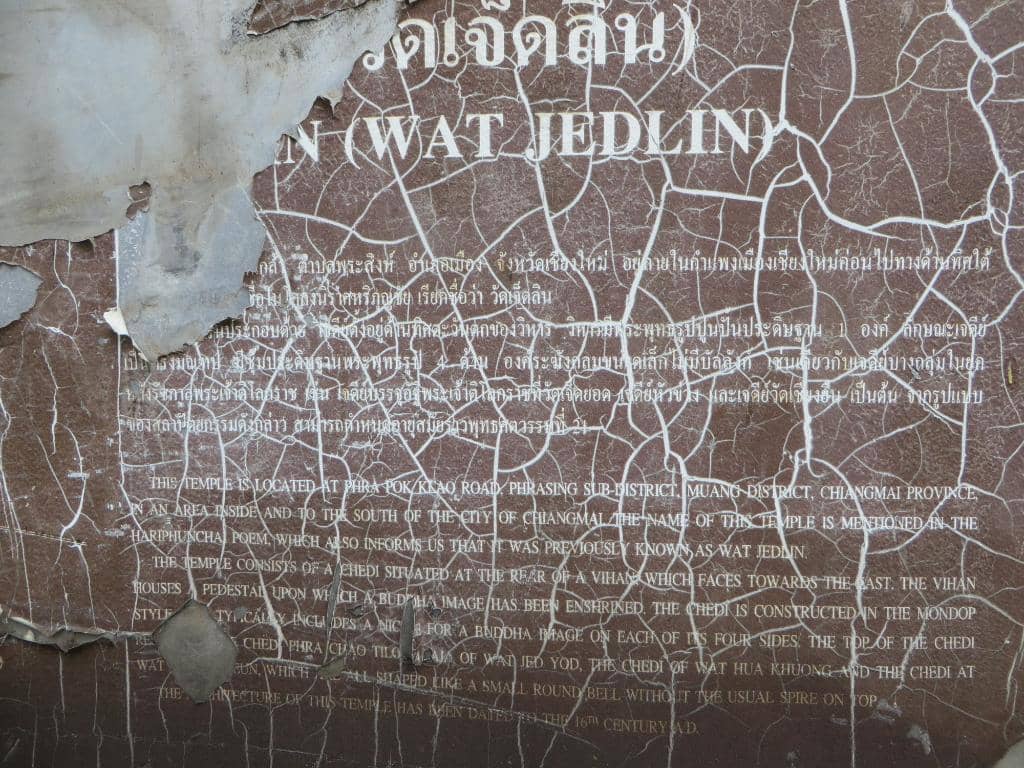 วัดเจ็ดลิน)
(WAT JEDLIN)
ตำบลพระสิงห์ อำเภอเมือง จังหวัดเชียงใหม่ อยู่ภายในกำแพงเมืองเชียงใหม่ค่อนไปทางด้านทิศใต้
เรียกชื่อว่า วัดเจ็ดลิน
วิหารมีพระพุทธรูปปูนปั้นประดิษฐาน 1 องค์ ลักษณะเจดีย์
องค์ระฆังกลมขนาดเล็กไม่มีบัลลังก์ เช่นเดียวกับเจดีย์บางกลุ่มในยุค
เช่น เจดีย์บรรจุอัฐิพระเจ้าติโลกราชที่วัดเจ็ดยอด เจดีย์หัวข่วง และเจดีย์วัดเชียงยืน เป็นต้น จากรูปแบบ
ของสถาปัตยกรรมดังกล่าว สามารถกำหนดอายุสมัยราวพุทธศตวรรษที่ 21
THIS TEMPLE IS LOCATED AT PHRA POK KLAO ROAD, PHRASING SUB-DISTRICT, MUANG DISTRICT, CHIANGMAI PROVINCE,
IN AN AREA INSIDE AND TO THE SOUTH OF THE CITY OF CHIANGMAI. THE NAME OF THIS TEMPLE IS MENTIONED IN THE
HARIPHUNCHAI POEM, WHICH ALSO INFORMS US THAT IT WAS PREVIOUSLY KNOWN AS WAT JEDLIN.
THE TEMPLE CONSISTS OF A CHEDI SITUATED AT THE REAR OF A VIHAN, WHICH FACES TOWARDS THE EAST. THE VIHAN
HOUSES A PEDESTAL UPON WHICH A BUDDHA IMAGE HAS BEEN ENSHRINED. THE CHEDI IS CONSTRUCTED IN THE MONDOP
STYLE INCLUDES A NICHE FOR A BUDDHA IMAGE ON EACH OF ITS FOUR SIDES. THE TOP OF THE CHEDI
CHEDI PHRA CHAO OF WAT JED YOD, THE CHEDI OF WAT HUA KHUONG AND THE CHEDI AT
WAT WHICH ALL SHAPED LIKE A SMALL ROUND BELL WITHOUT THE USUAL SPIRE ON TOP.
THE ARCHITECTURE OF THIS TEMPLE HAS BEEN DATED TO THE 16TH CENTURY A.D.